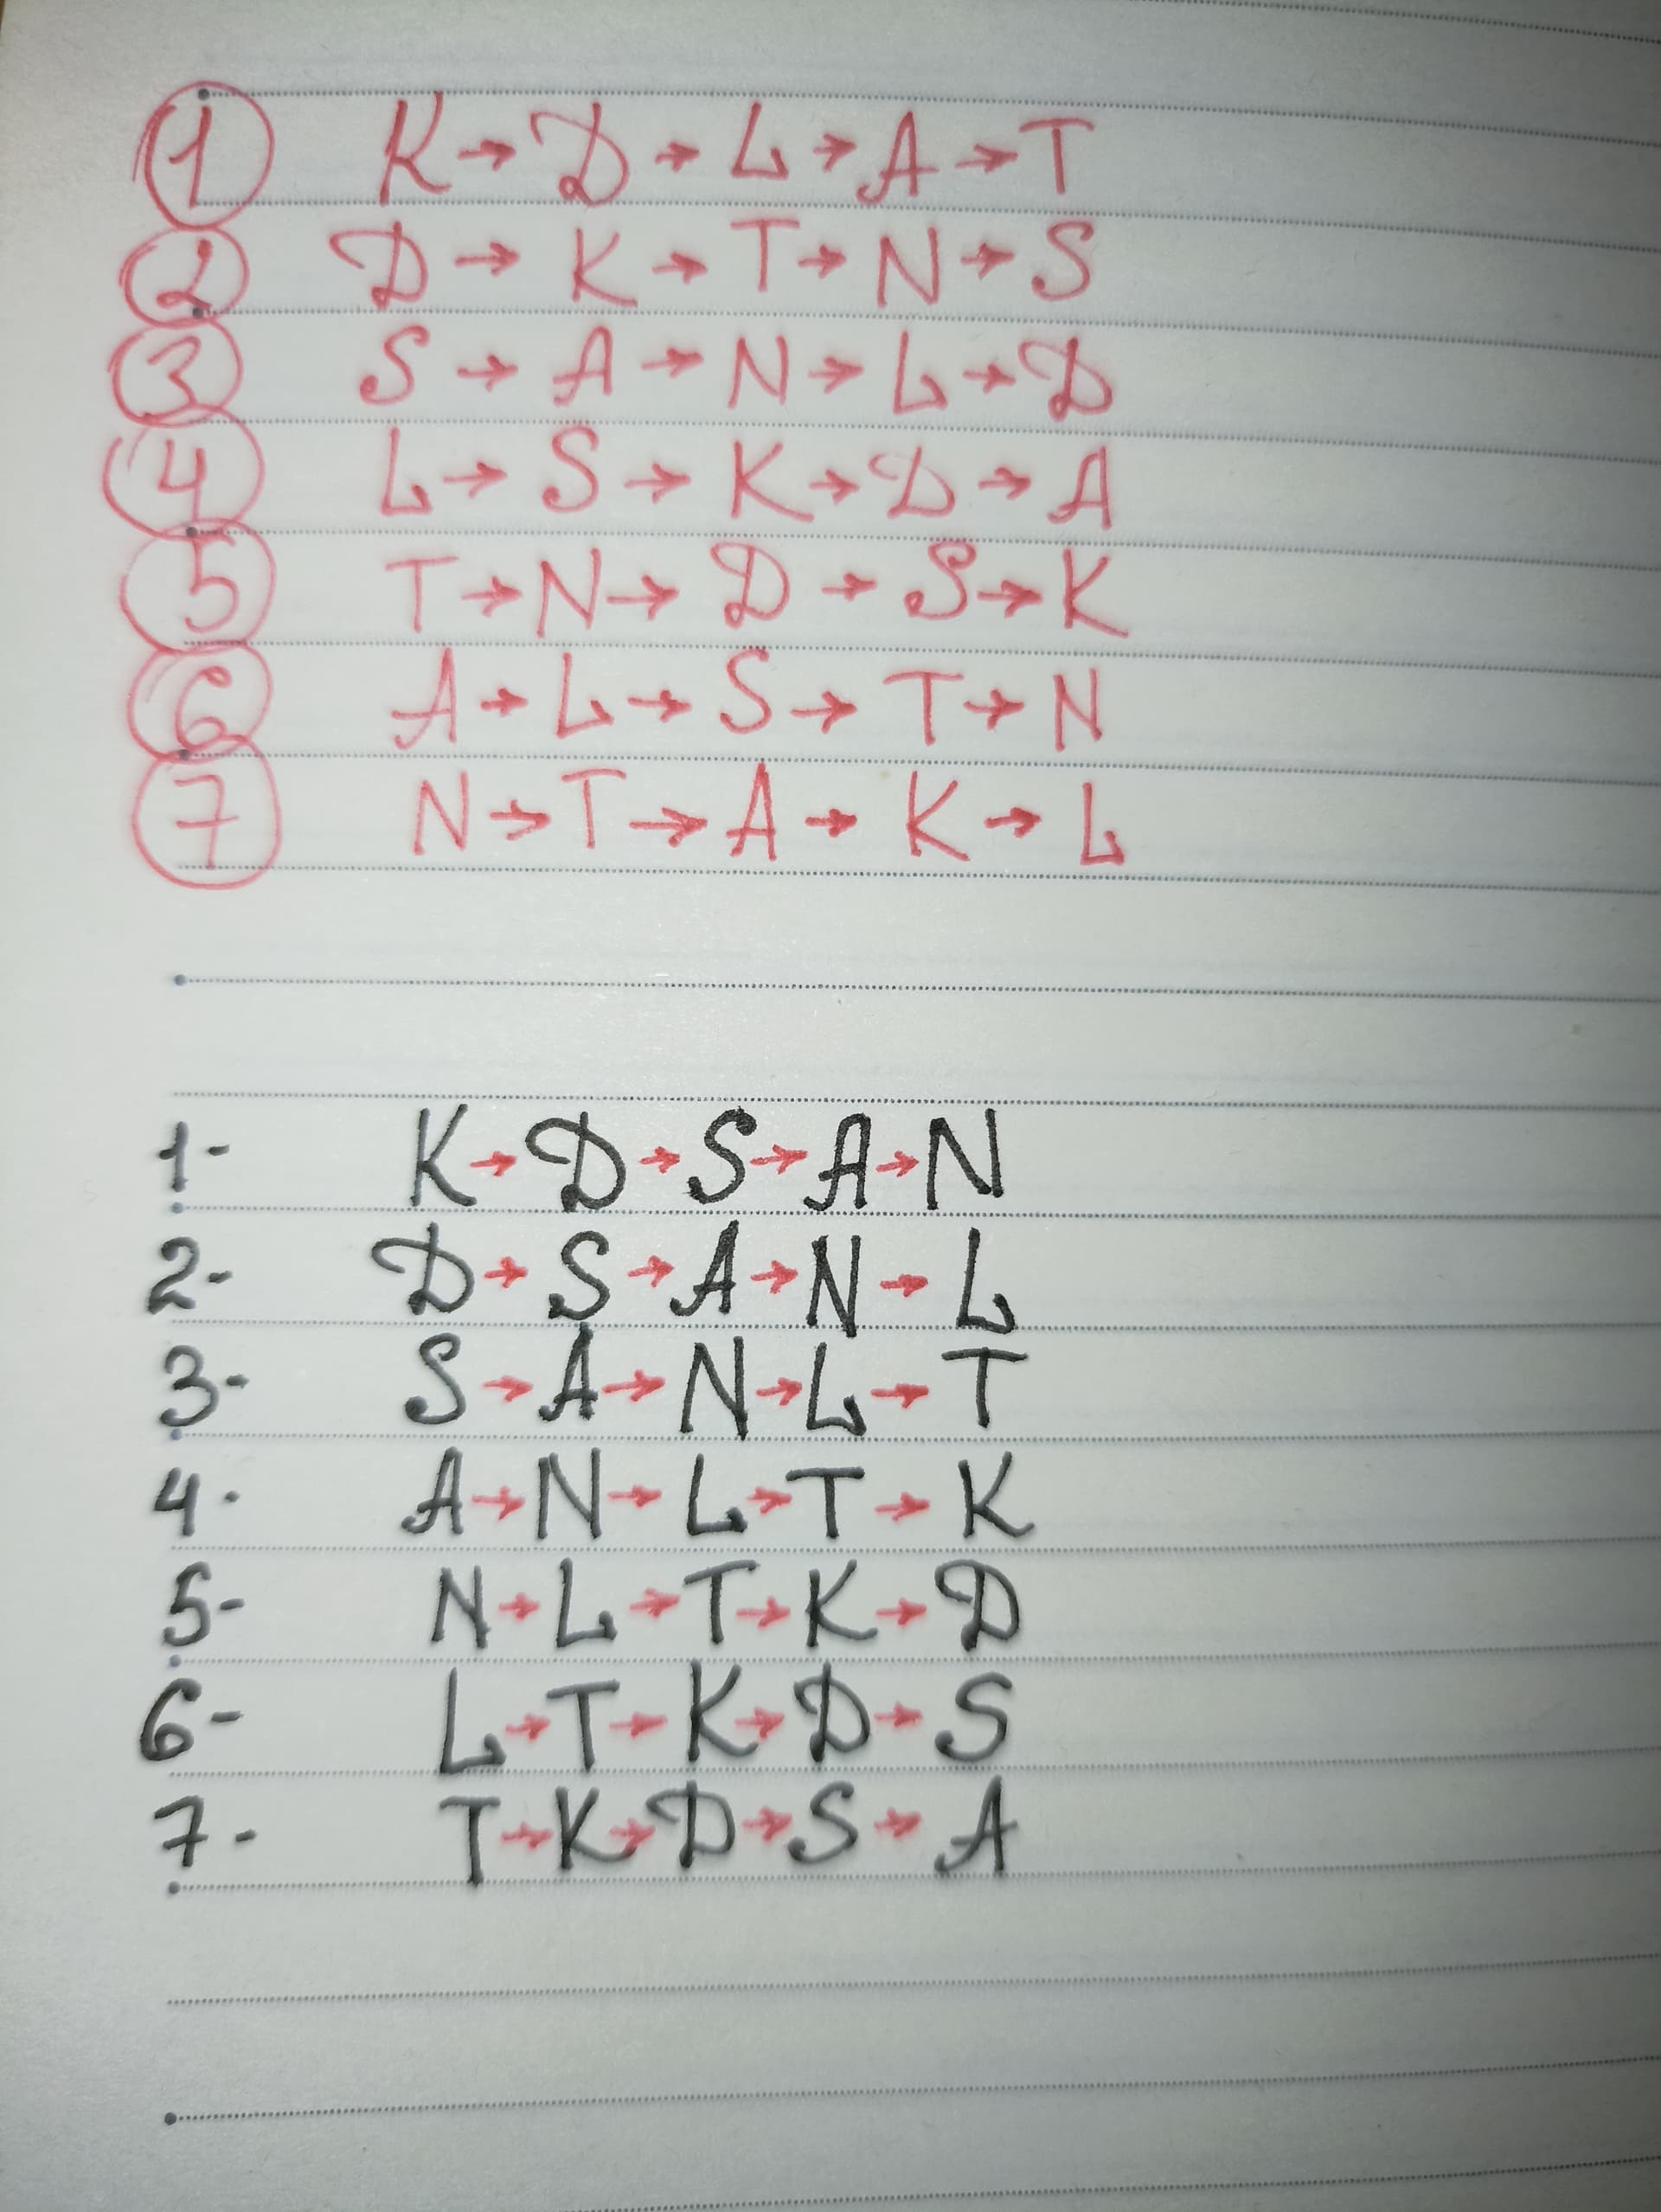 1 K → D → L → A → T
2 D → K → T → N → S
3 S → A → N → L → D
4 L → S → K → D → A
5 T → N → D → S → K
6 A → L → S → T → N
7 N → T → A → K → L
1- K → D → S → A → N
2- D → S → A → N → L
3- S → A → N → L → T
4- A → N → L → T → K
5- N → L → T → K → D
6- L → T → K → D → S
7- T → K → D → S → A